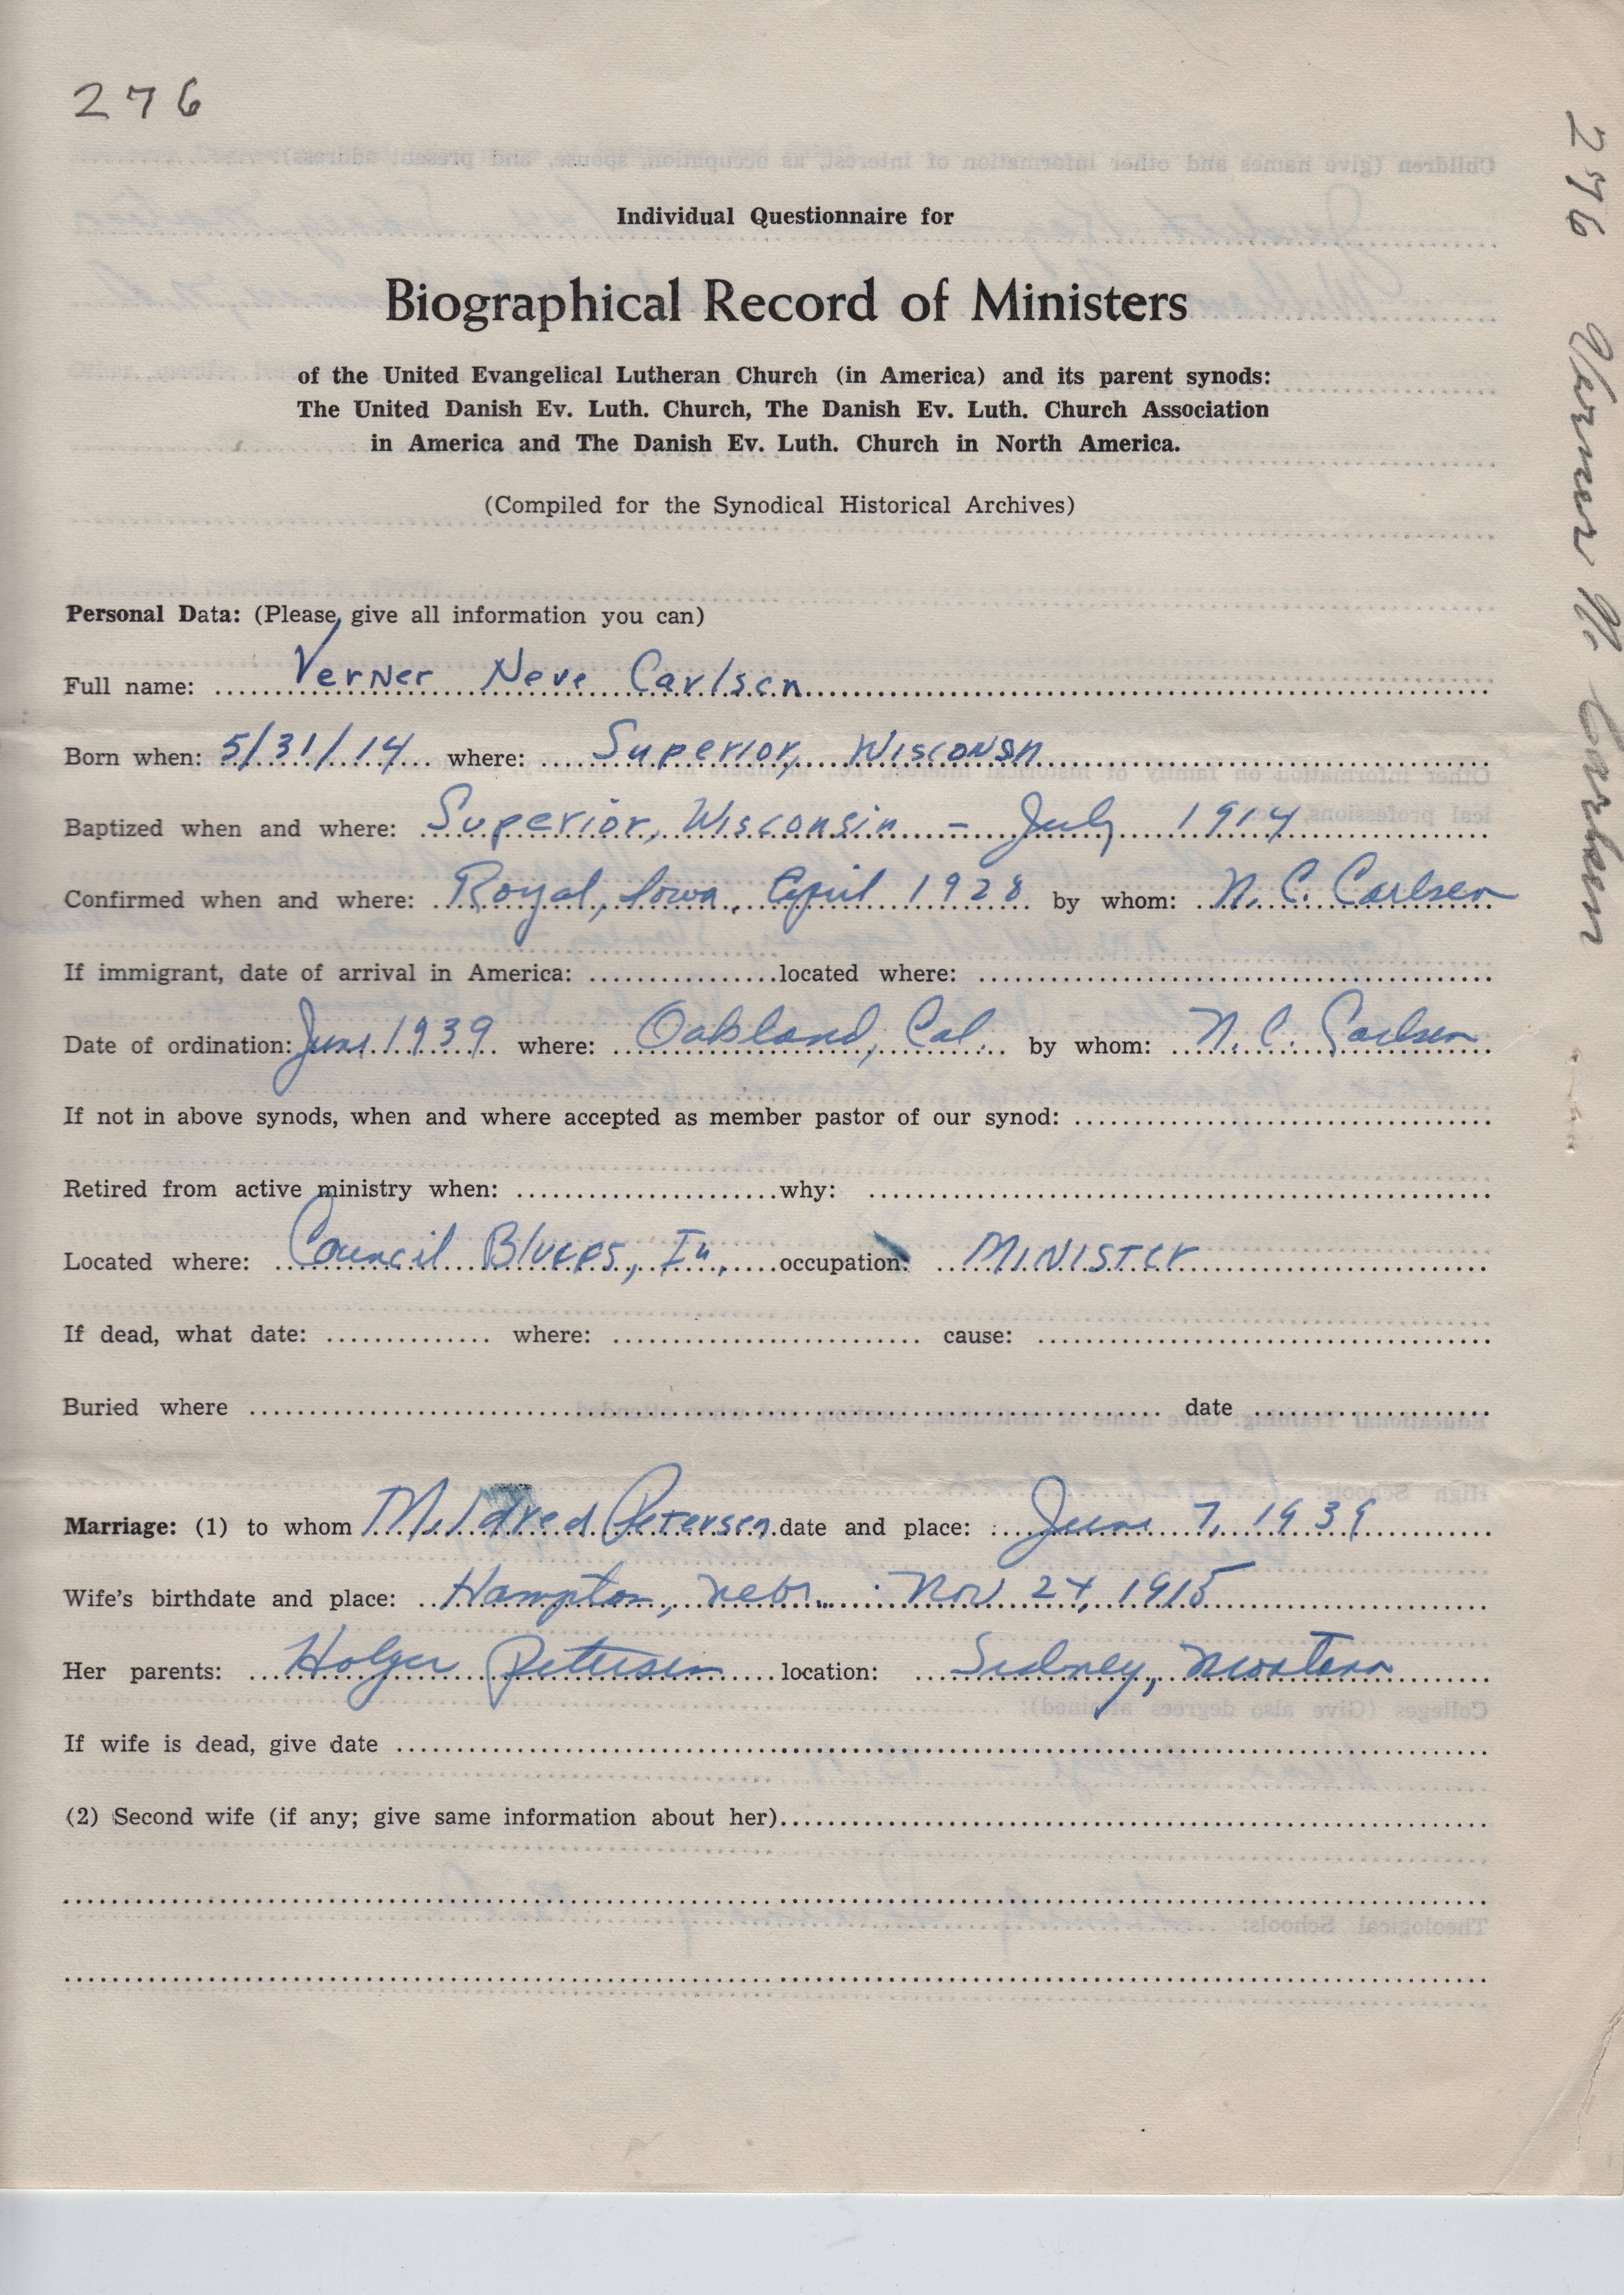 276
Individual Questionnaire for
Biographical Record of Ministers
of the United Evangelical Lutheran Church (in America) and its parent synods:
The United Danish Ev. Luth. Church, The Danish Ev. Luth. Church Association
in America and The Danish Ev. Luth. Church in North America.
(Compiled for the Synodical Historical Archives)
Personal Data: (Please give all information you can)
Full name: Verner Neve Carlsen
Born when: 5/31/14 where: Superior, Wisconsn
Baptized when and where: Superior, Wisconsin - July 1914
Confirmed when and where: Royal, Iowa, April 1928 by whom: N. C. Carlsen
If immigrant, date of arrival in America: located where:
Date of ordination: June 1939 where: Oakland, Cal. by whom: N. C. Carlsen
If not in above synods, when and where accepted as member pastor of our synod:
Retired from active ministry when: why:
Located where: Council Bluffs, Ia. occupation: Minister
If dead, what date: where: cause:
Buried where date
Marriage: (1) to whom Mildred Petersen date and place: June 7, 1939
Wife's birthdate and place: Hampton, Nebr. Nov 24, 1915
Her parents: Holger Petersen location: Sidney, Montana
If wife is dead, give date
(2) Second wife (if any; give same information about her)
276 Verner N. Carlsen